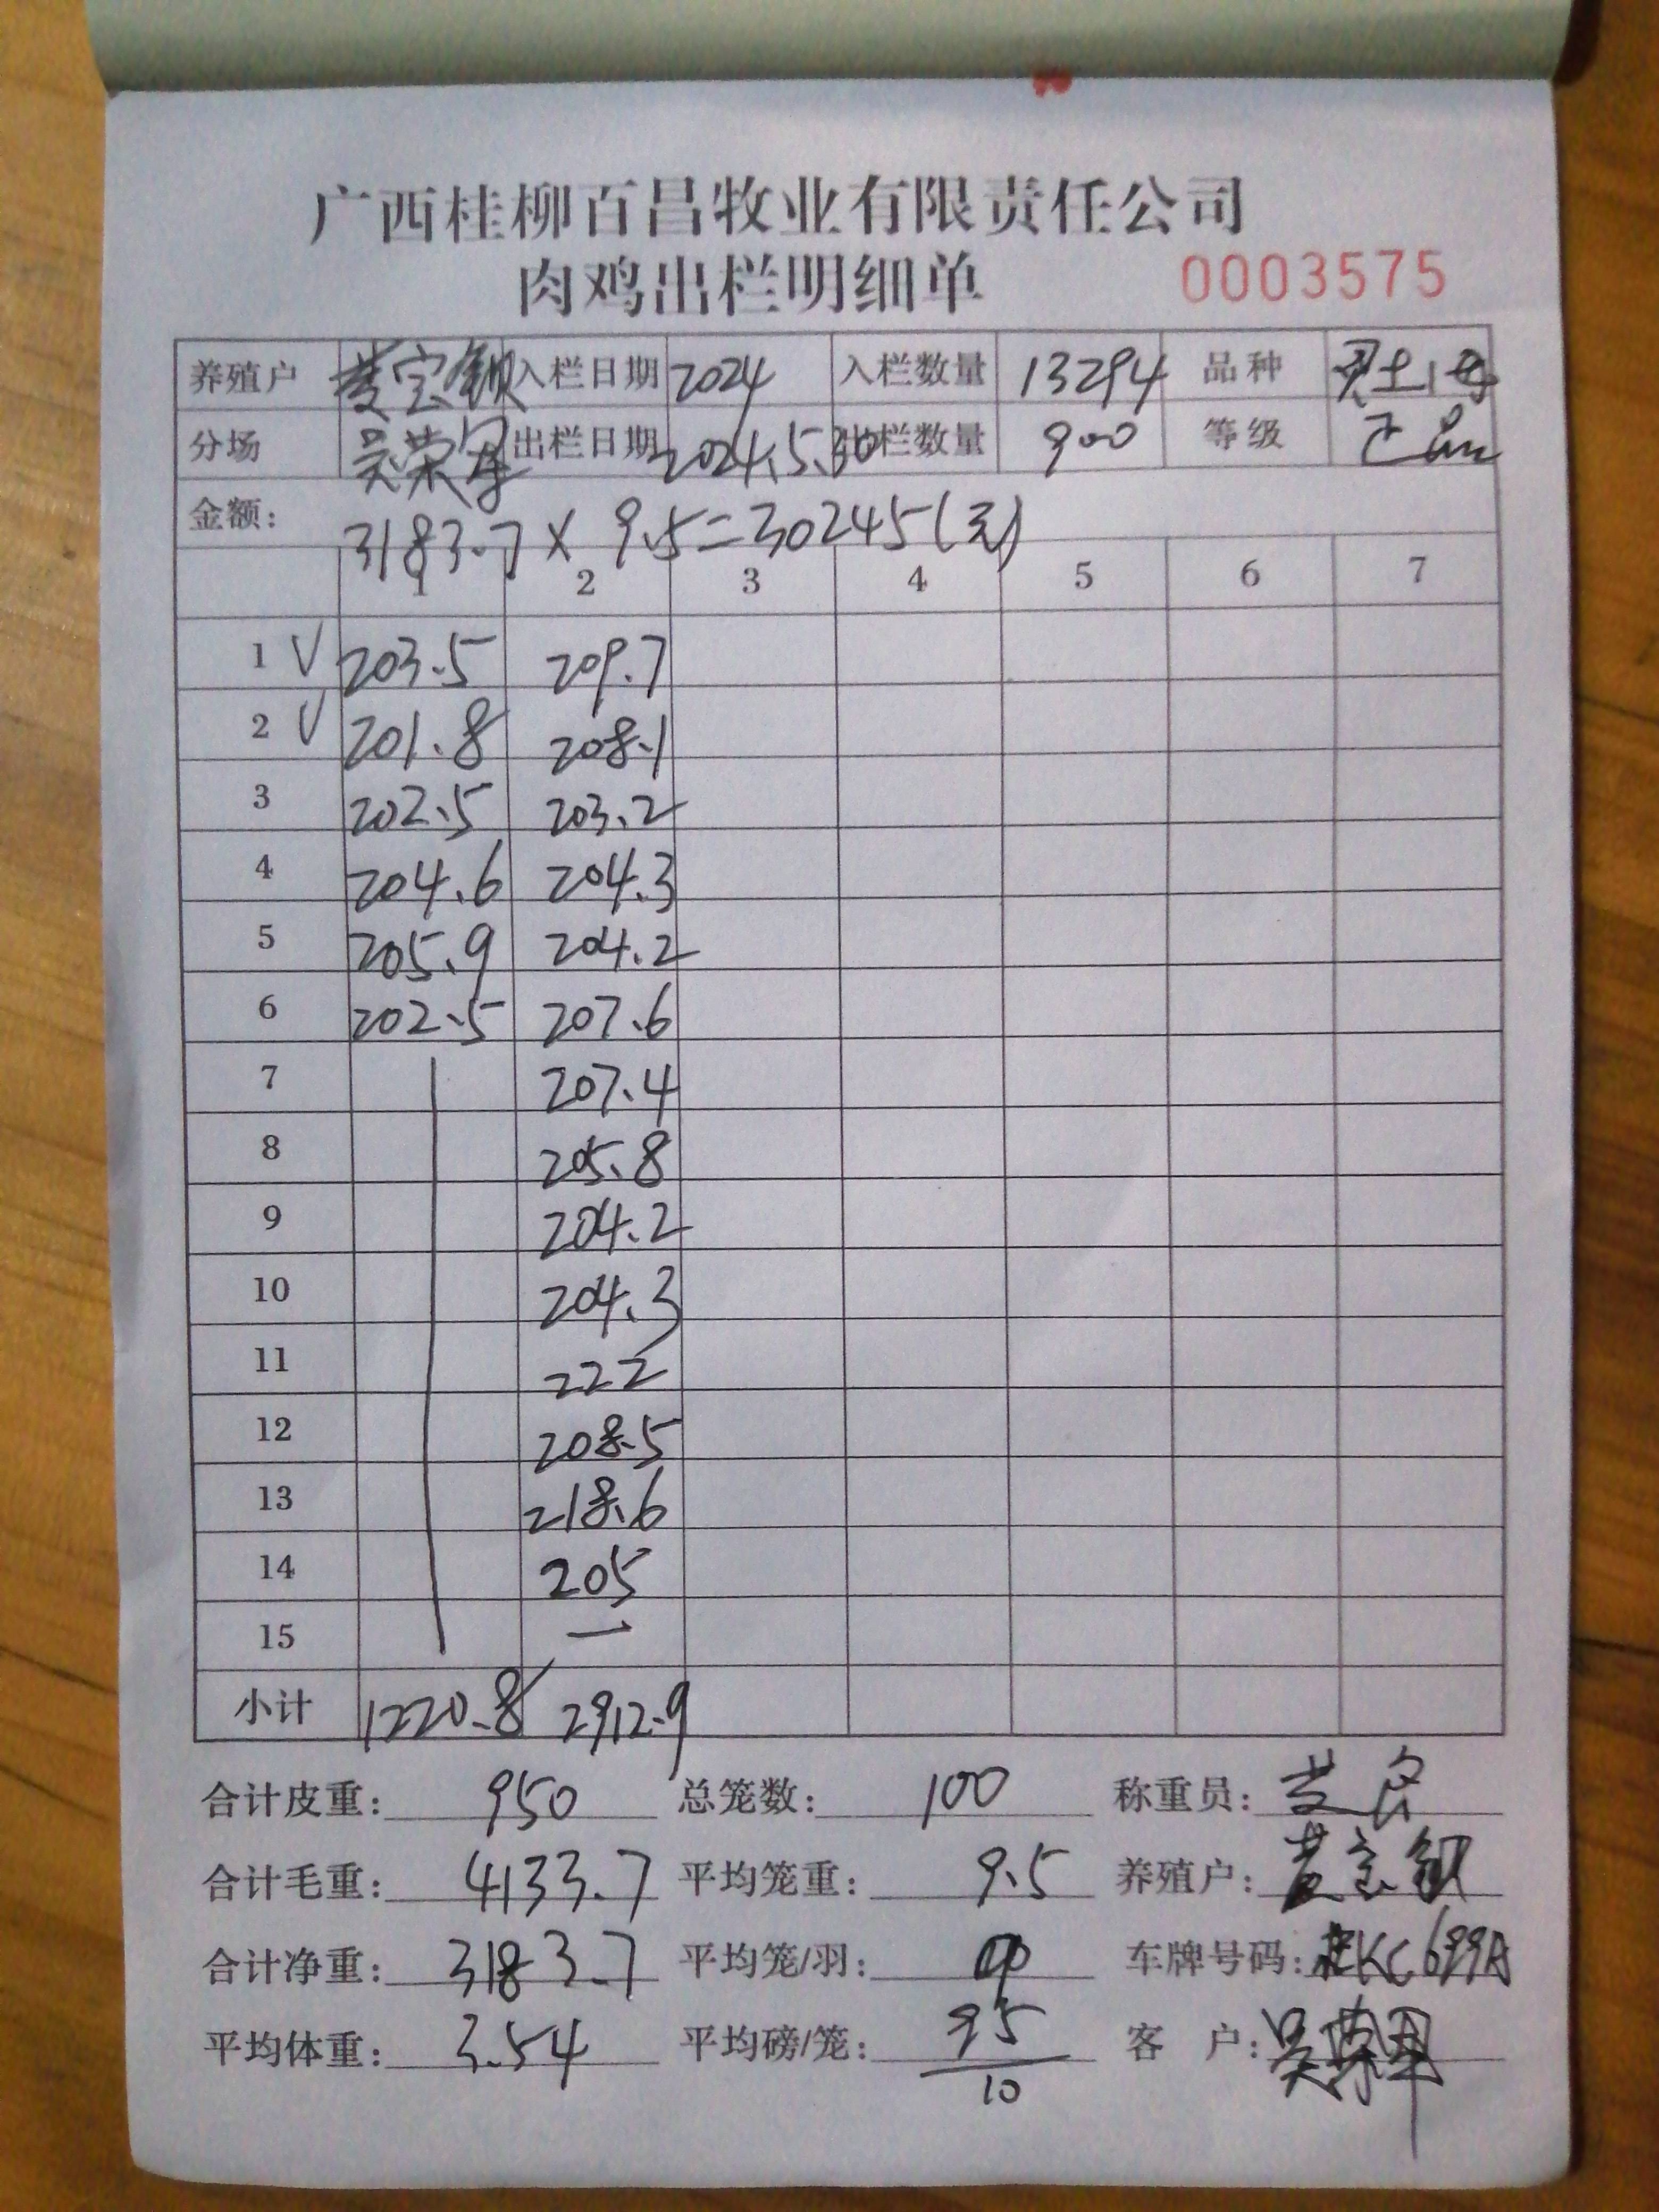 广西桂柳百昌牧业有限责任公司
肉鸡出栏明细单 0003575
养殖户 黄宝钡 入栏日期 2024 入栏数量 13294 品种
分场 吴荣军 出栏日期 2024.5.30 出栏数量 900 等级 正品
金额: 3183.7 × 9.5=30245(元)
1 2 3 4 5 6 7
1 √ 203.5 209.7
2 √ 201.8 208.1
3 202.5 203.2
4 204.6 204.3
5 205.9 204.2
6 202.5 207.6
7 207.4
8 205.8
9 204.2
10 204.3
11 222
12 208.5
13 218.6
14 205
15 一
小计 1220.8 2912.9
合计皮重: 950 总笼数: 100 称重员: 黄
合计毛重: 4133.7 平均笼重: 9.5 养殖户: 黄宝钡
合计净重: 3183.7 平均笼/羽: 车牌号码: 桂KC699A
平均体重: 3.54 平均磅/笼: 95/10 客 户: 吴荣军